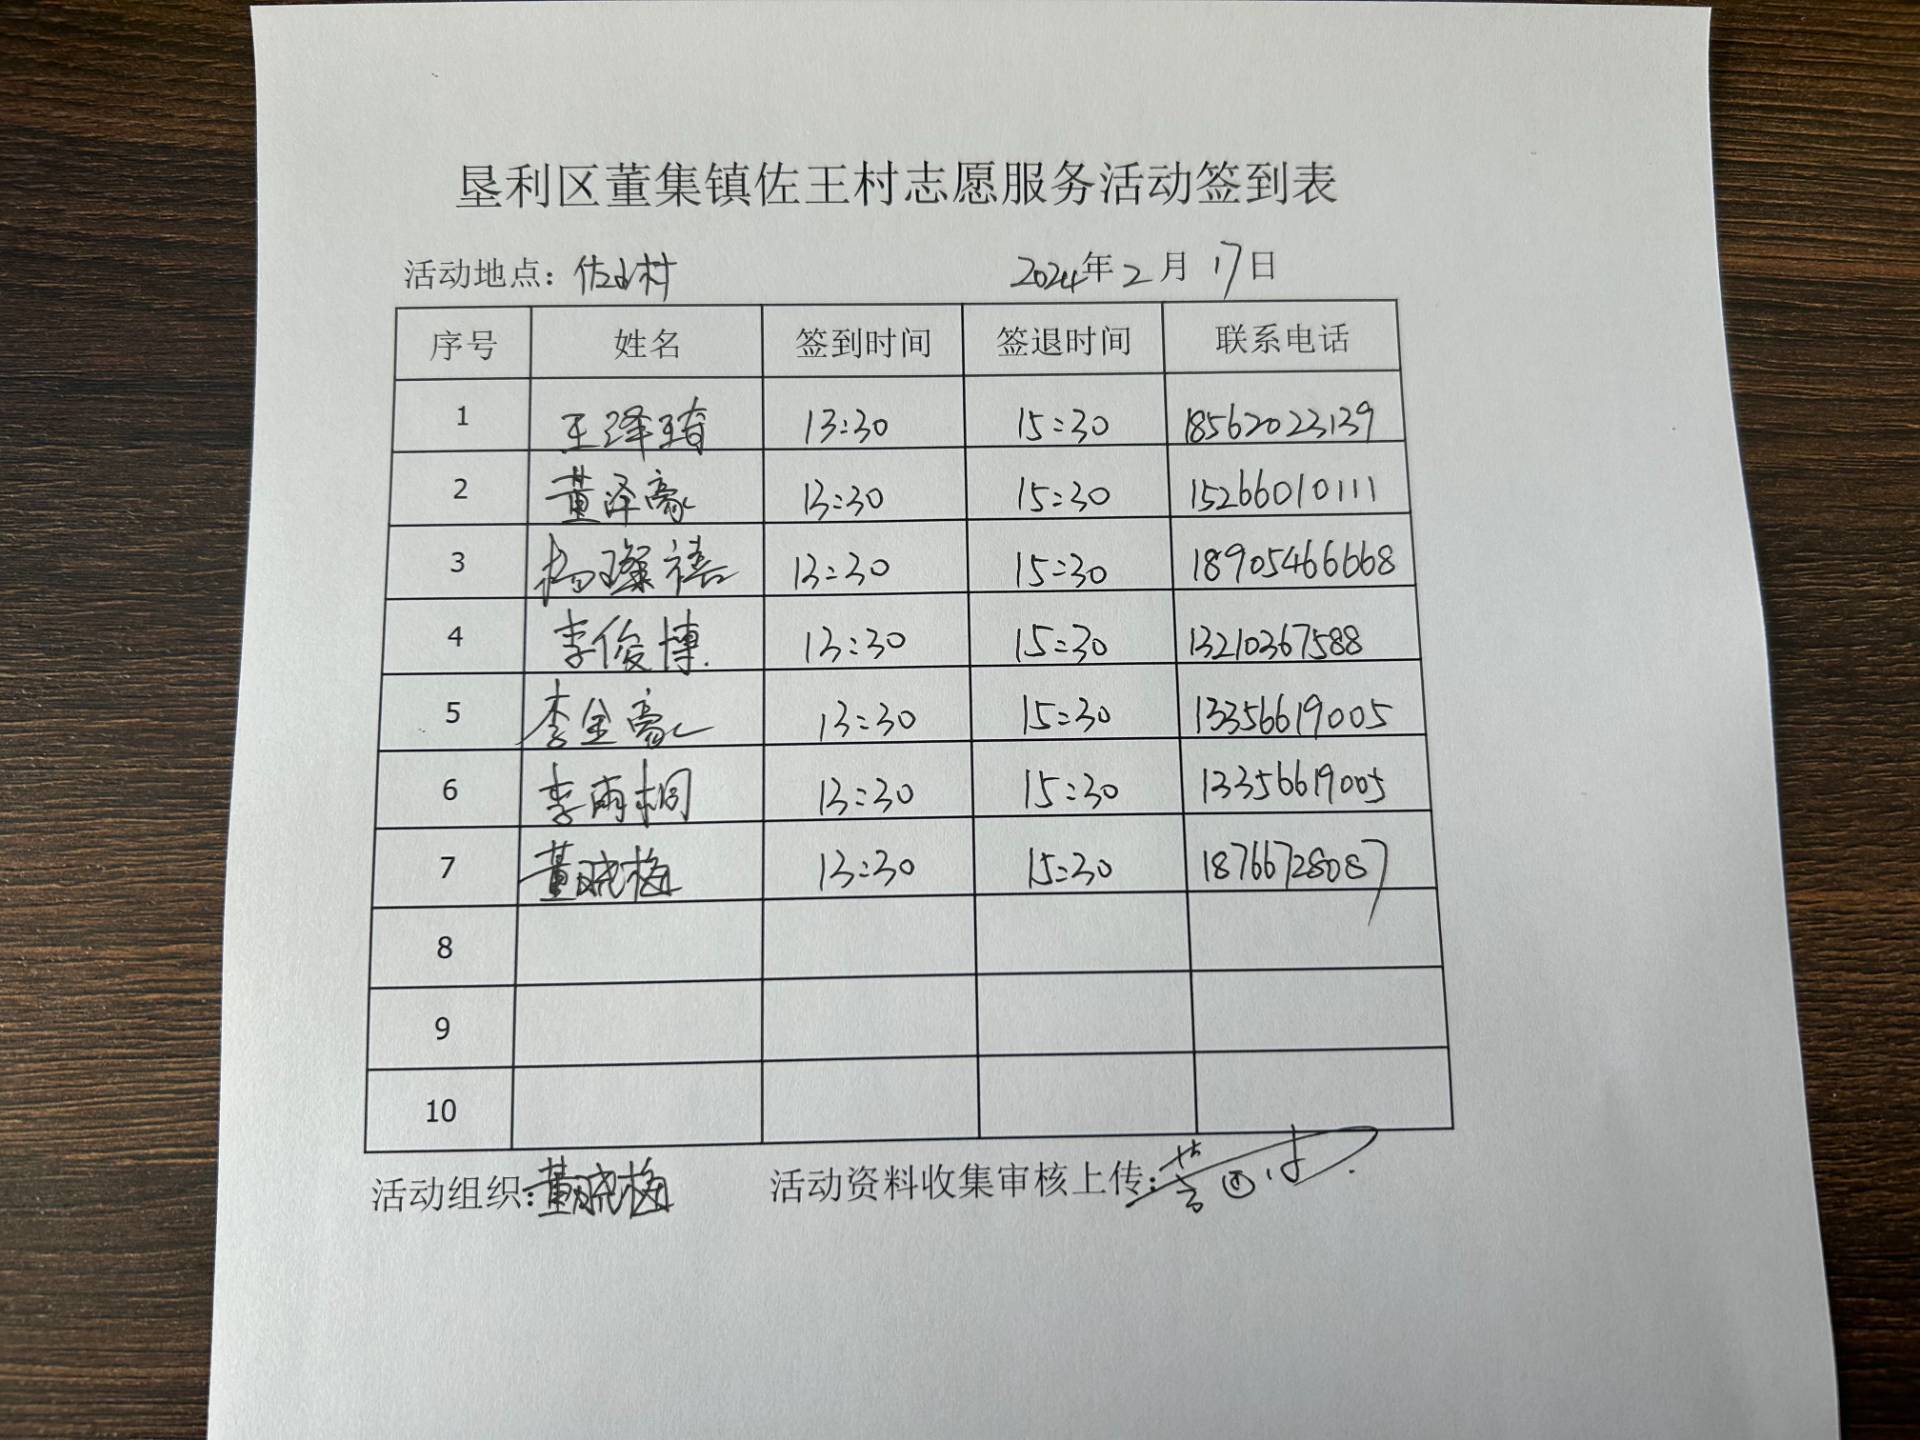 垦利区董集镇佐王村志愿服务活动签到表
活动地点：佐王村 2024年2月17日
序号 姓名 签到时间 签退时间 联系电话
1 王泽琦 13:30 15:30 18562023139
2 董泽豪 13:30 15:30 15266010111
3 杨璨禧 13:30 15:30 18905466668
4 李俊博 13:30 15:30 13210367588
5 李金豪 13:30 15:30 13356619005
6 李雨桐 13:30 15:30 13356619005
7 董晓梅 13:30 15:30 18766728087
8
9
10
活动组织：董晓梅 活动资料收集审核上传：